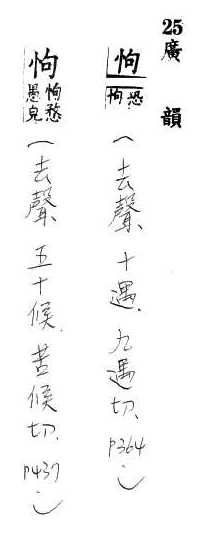 25廣韻
怐 恐怐（去聲、十遇、九遇切、P364）
怐 怐愗愚皃（去聲、五十候、苦候切、P437）